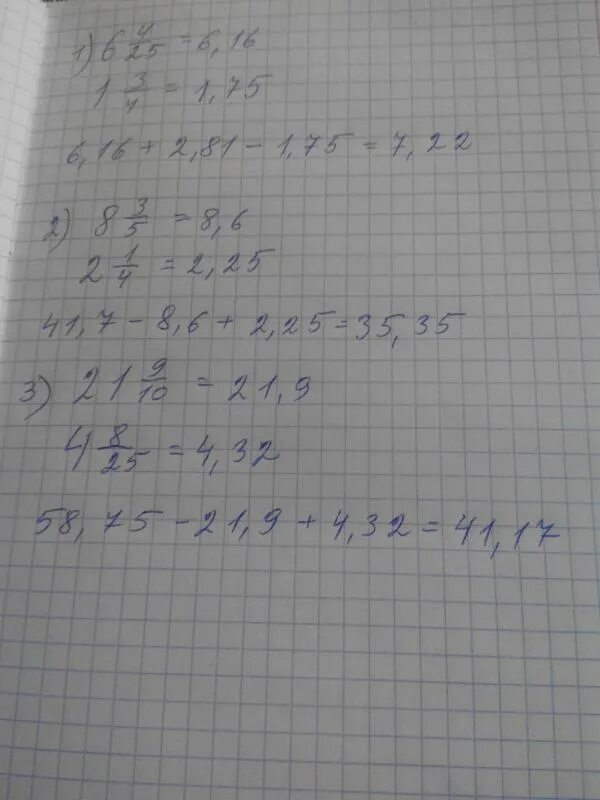 1) 6 4/25 = 6,16
1 3/4 = 1,75
6,16 + 2,81 - 1,75 = 7,22
2) 8 3/5 = 8,6
2 1/4 = 2,25
41,7 - 8,6 + 2,25 = 35,35
3) 21 9/10 = 21,9
4 8/25 = 4,32
58,75 - 21,9 + 4,32 = 41,17